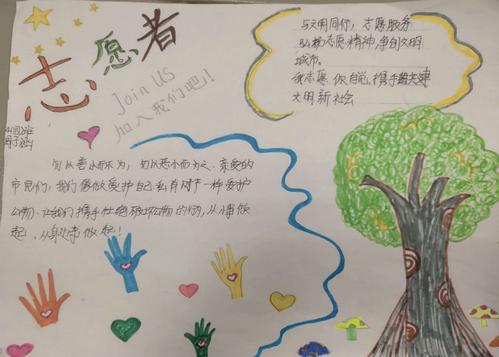 志愿者
Join US
加入我们吧!
与文明同行,志愿服务
弘扬志愿精神,争创文明
城市。
我志愿 做自己,携手共建
文明新社会
勿以善小而不为,勿以恶小而为之、亲爱的
市民们,我们像做爱护自己私有财产一样爱护
公物、让我们携手杜绝破坏公物的行为,从小事做
起、从身边事做起!